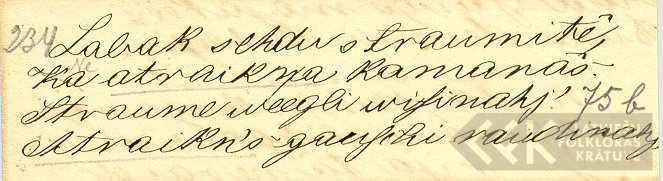 234 Labak sehdu straumitē,
Ka atraikņa kamanās.
Straume weegli wisinahj' 75 b
Atraikn's gauschi raudinahj
LATVIEŠU
FOLKLORAS
KRĀTUVE